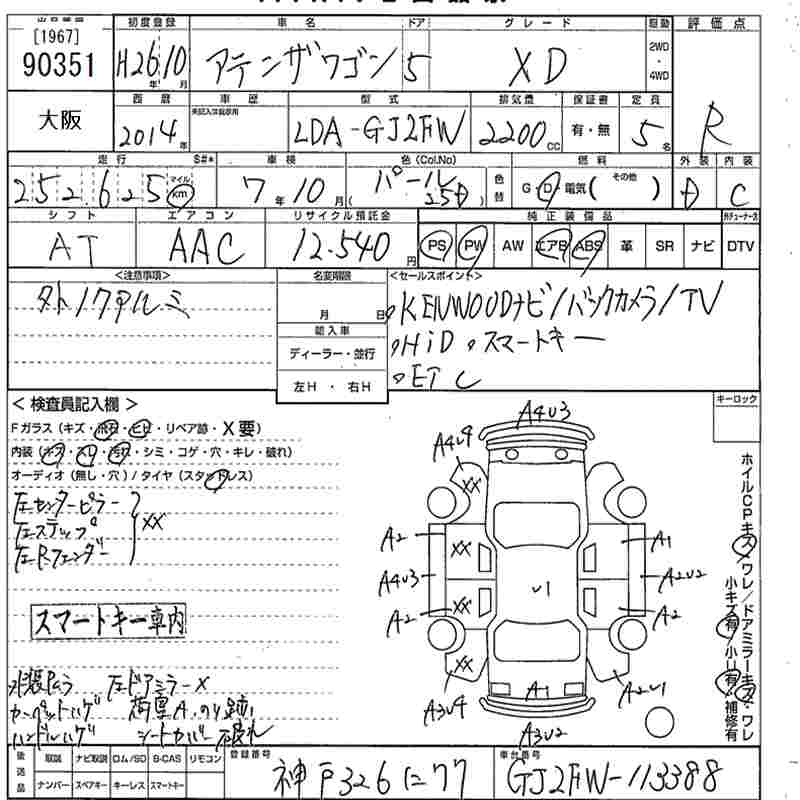 [1967]
90351
大阪
初度登録 車名 ドア グレード 駆動 評価点
H26年10月 アテンザワゴン 5 XD 2WD・4WD R
西暦 車歴 型式 排気量 保証書 定員
未記入は自家用
2014年 LDA-GJ2FW 2200cc 有・無 5名
走行 S#* 車検 色(Col.No) 燃料 外装 内装
252,625 マイル km 7年10月 パール (25D) 色替 G・D・電気( その他 ) D C
シフト エアコン リサイクル預託金 純正装備品
AT AAC 12.540円 PS PW AW エアB ABS 革 SR ナビ DTV
<注意事項> 名変期限 <セールスポイント>
タト/クアルミ
月 日
輸入車
ディーラー・並行
左H・右H
KENWOODナビ/バックカメラ/TV
HiD スマートキー
ETC
キーロック
<検査員記入欄>
Fガラス(キズ・飛石・ヒビ・リペア跡・X要)
内装(キズ・スレ・汚れ・シミ・コゲ・穴・キレ・破れ)
オーディオ(無し・穴)/タイヤ(スタッドレス)
左センターピラー
左ステップ XX
左R.フェンダー
スマートキー車内
左ドアミラーX
カーペットハゲ
ハンドルハゲ シートカバー 破れ
A4U3
A4U4
XX
A2 XX A1
A4U3 U1 A2U2
A2 XX A2
XX
A3U4 A1 A2U1
A3U2
ホイルCPキズ・ワレ/ドアミラーキズ・ワレ
小キズ有・小U有・補修有
後送品 取説 ナビ取説 ロム/SD B-CAS リモコン
ナンバー スペアキー キーレス スマートキー
登録番号 車台番号
神戸326に77 GJ2FW-113388